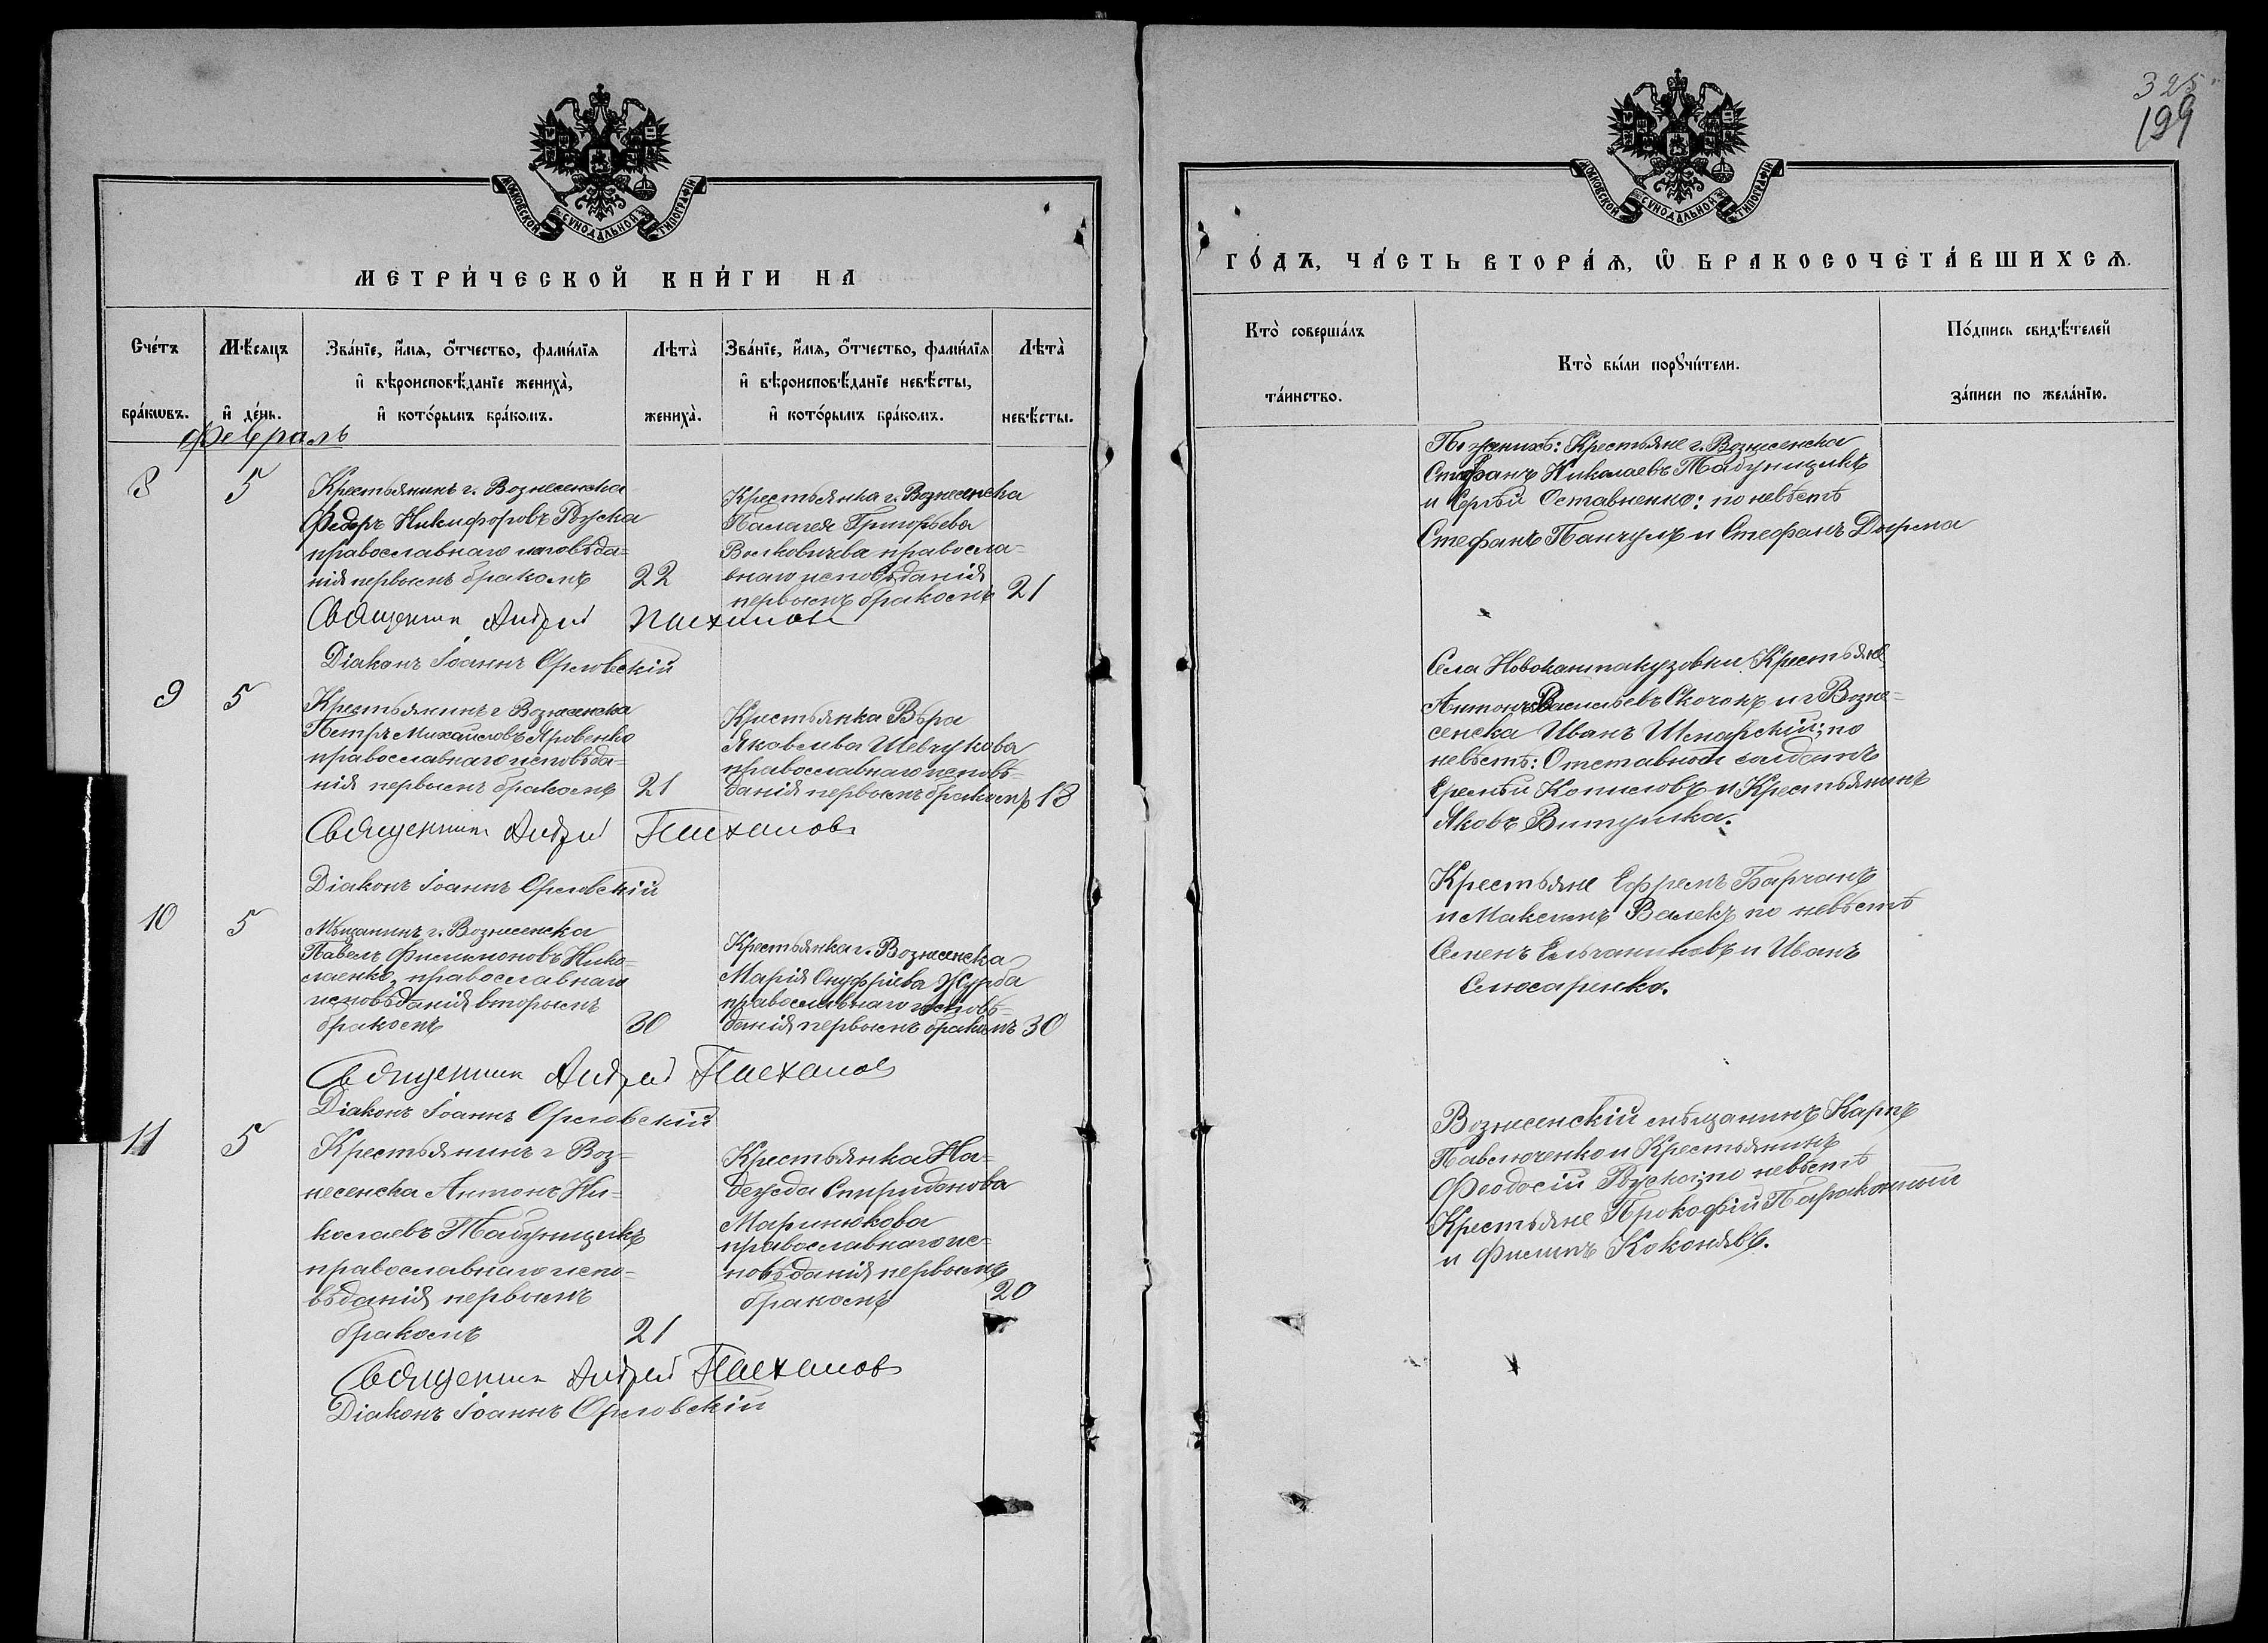 325
199
МОСКОВСКОЙ СѴНОДАЛЬНОЙ ТИПОГРАФІИ
МЕТРИ́ЧЕСКОЙ КНИ́ГИ НА
Сче́тъ бра́кѡвъ.
Мѣ́сяцъ и҆ де́нь.
Зва́нїе, и҆́мѧ, ѻ҆́тчество, фами́лїѧ
и҆ вѣроисповѣ́данїе жениха̀,
и҆ кото́рымъ бра́комъ.
Лѣта̀ жениха̀.
Зва́нїе, и҆́мѧ, ѻ҆́тчество, фами́лїѧ
и҆ вѣроисповѣ́данїе невѣ́сты,
и҆ кото́рымъ бра́комъ.
Лѣта̀ невѣ́сты.
Февраль
8
5
Крестьянинъ г. Вознесенска
Федоръ Никифоровъ Руска
православнаго исповѣда=
нія первымъ бракомъ
22
Крестьянка г. Вознесенска
Палагея Григорьева
Волковичева правосла=
внаго исповѣданія
первымъ бракомъ
21
Священникъ Андрей
Діаконъ Іоаннъ Орловскій
9
5
Крестьянинъ г Вознесенска
Петръ Михайловъ Яровенко
православнаго исповѣда=
нія первымъ бракомъ
21
Крестьянка Вѣра
Яковлева Шевчукова
православнаго исповѣ=
данія первымъ бракомъ
18
Священникъ Андрей
Діаконъ Іоаннъ Орловскій
10
5
Мѣщанинъ г. Вознесенска
Павелъ Филимоновъ Нико=
лаенко, православнаго
исповѣданія вторымъ
бракомъ
30
Крестьянка г. Вознесенска
Марія Онуфріева Журба
православнаго исповѣ=
данія первымъ бракомъ
30
Священникъ Андрей
Діаконъ Іоаннъ Орловскій
11
5
Крестьянинъ г Воз=
несенска Антонъ Ни=
колаевъ Табунщикъ
православнаго испо=
вѣданія первымъ
бракомъ
21
Крестьянка На=
дежда Спиридонова
Маринюкова
православнаго ис=
повѣданія первымъ
бракомъ
20
Священникъ Андрей
Діаконъ Іоаннъ Орловскій
МОСКОВСКОЙ СѴНОДАЛЬНОЙ ТИПОГРАФІИ
ГО́ДЪ, ЧА́СТЬ ВТОРА́Ѧ, Ѡ҆ БРАКОСОЧЕТА́ВШИХСѦ.
Кто̀ соверша́лъ та́инство.
Кто̀ бы́ли порꙋчи́тели.
По́дпись свидѣ́телей за́писи по жела́нїю.
По женихѣ: Крестьяне г. Вознесенска
Стефанъ Николаевъ Табунщикъ
и Сергѣй Оставненко: по невѣстѣ
Стефанъ Панчулъ и Стефанъ Дырма
Села Новокантакузовки Крестьяне
Антонъ Васильевъ Скочокъ и г Возне=
сенска Иванъ Шкарскій; по
невѣстѣ: Отставной солдатъ
Еремѣй Копыловъ и Крестьянинъ
Яковъ Витушка.
Крестьяне Ефремъ Барчанъ
и Максимъ Валекъ по невѣстѣ
Семенъ Ельчаниновъ и Иванъ
Слюсаренко.
Вознесенскій мѣщанинъ Карпъ
Павлюченко и Крестьянинъ
Феодосій Руска; по невѣстѣ
Крестьяне Прокофій Параконный
и Филипъ Коконявъ.